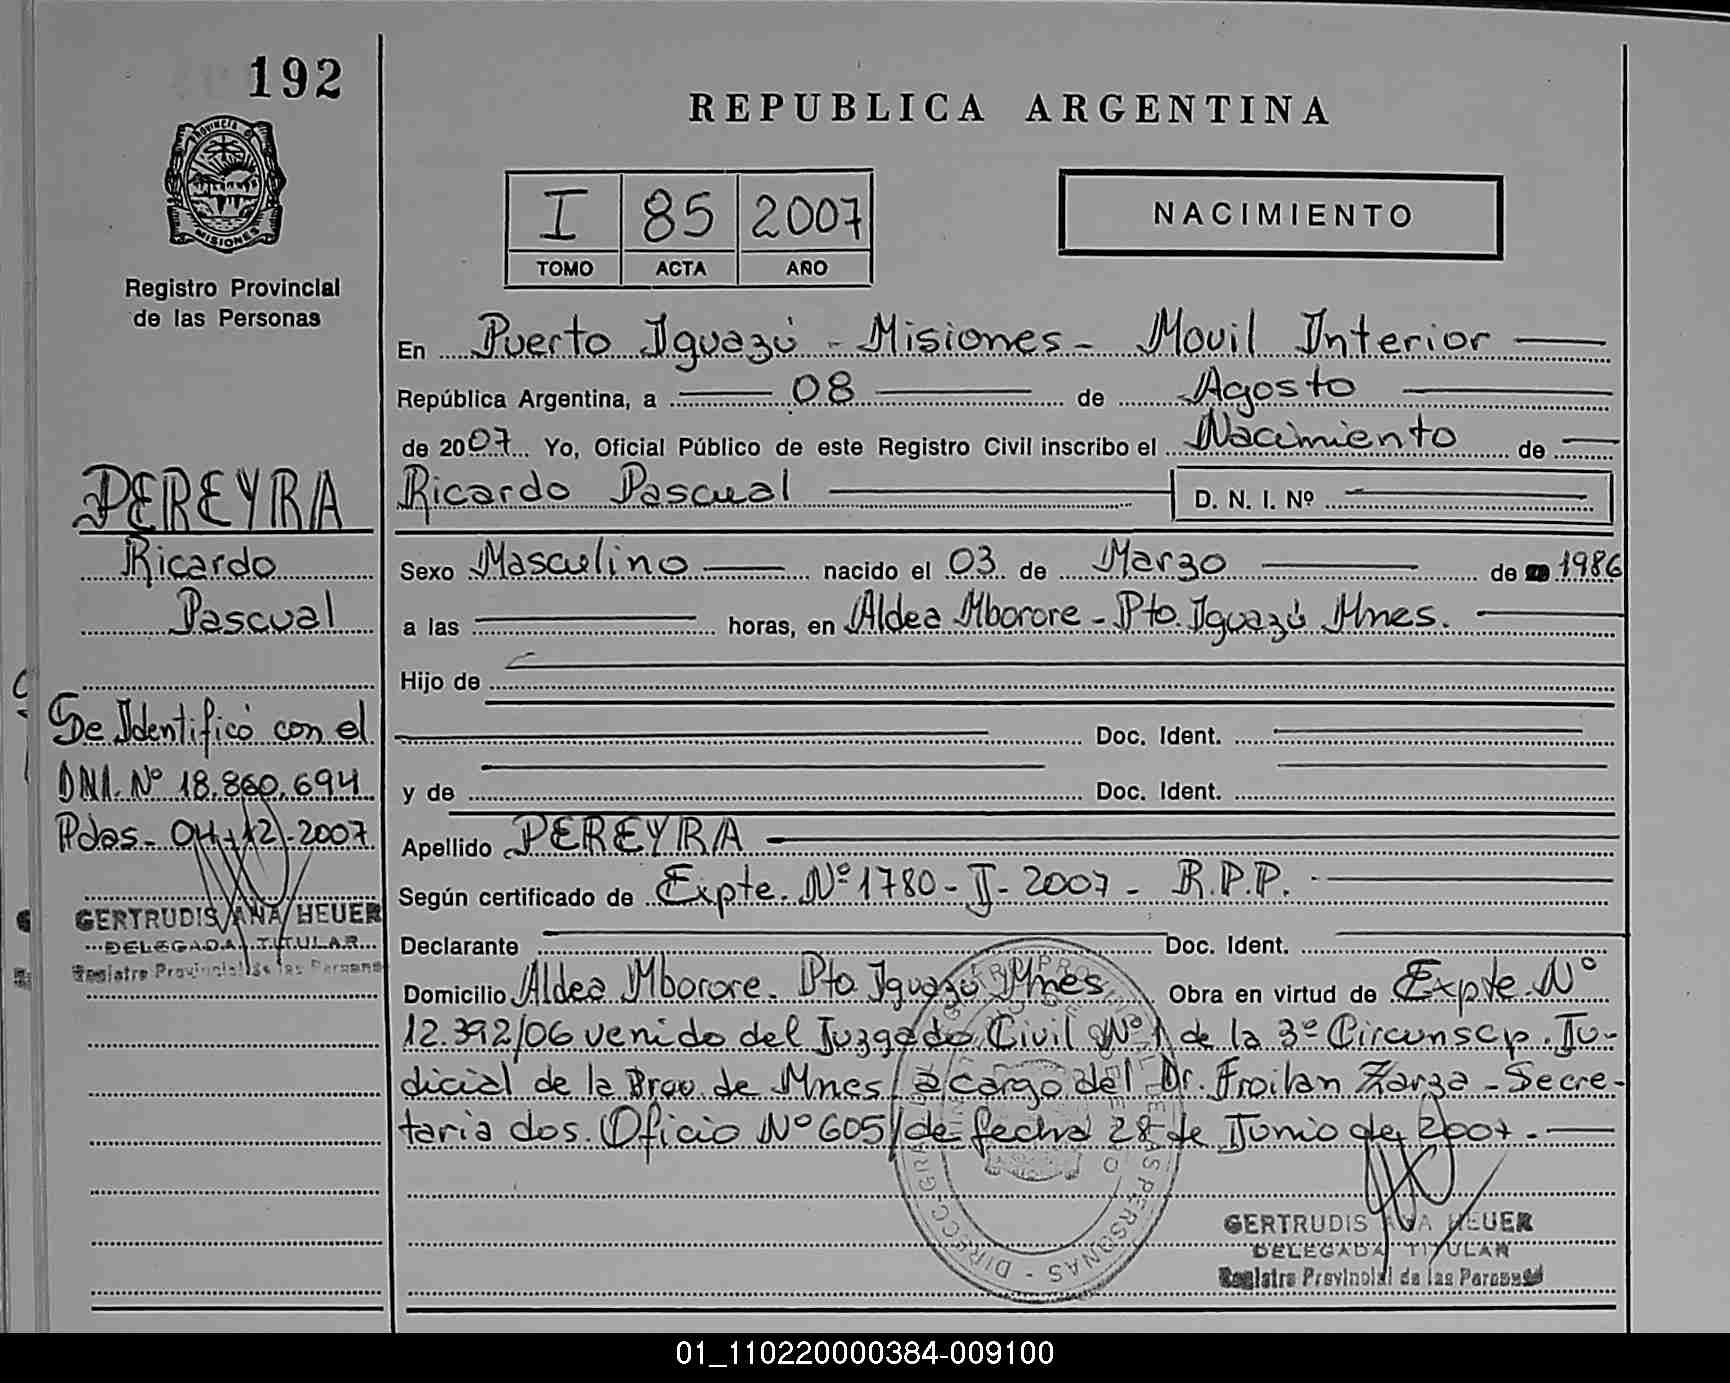 192
PROVINCIA DE
MISIONES
Registro Provincial
de las Personas
PEREYRA
Ricardo
Pascual
Se Identificó con el
DNI. Nº 18.860.694
Pdas - 04-12-2007
GERTRUDIS ANA HEUER
DELEGADA TITULAR
Registro Provincial de las Personas
REPUBLICA ARGENTINA
I 85 2007
TOMO ACTA AÑO
NACIMIENTO
En Puerto Iguazú - Misiones - Movil Interior
República Argentina, a 08 de Agosto
de 2007 Yo, Oficial Público de este Registro Civil inscribo el Nacimiento de
Ricardo Pascual D. N. I. Nº
Sexo Masculino nacido el 03 de Marzo de 1986
a las horas, en Aldea Mborore - Pto. Iguazú Mnes.
Hijo de
Doc. Ident.
y de Doc. Ident.
Apellido PEREYRA
Según certificado de Expte. Nº 1780 - I - 2007 - R.P.P.
Declarante Doc. Ident.
Domicilio Aldea Mborore. Pto. Iguazú Mnes Obra en virtud de Expte. Nº
12.392/06 venido del Juzgado Civil Nº 1 de la 3º Circunscp. Ju-
dicial de la Prov. de Mnes, a cargo del Dr. Froilan Zarza - Secre-
taria dos. Oficio Nº 605/ de fecha 28 de Junio de 2007.
GERTRUDIS ANA HEUER
DELEGADA TITULAR
Registro Provincial de las Personas
01_110220000384-009100